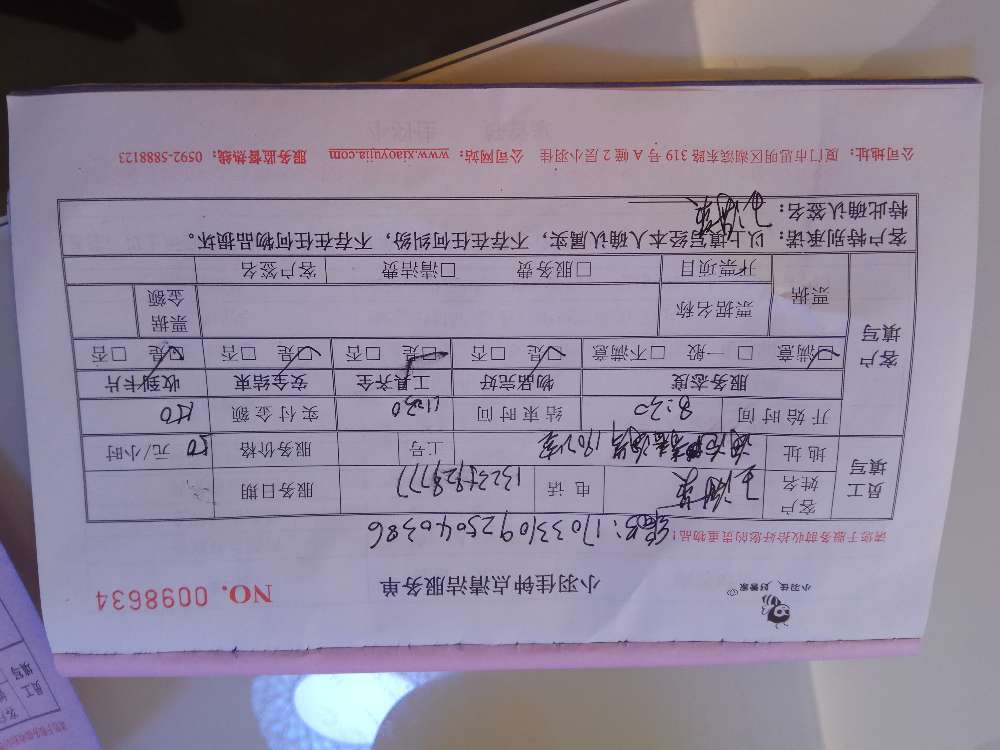 小羽佳，好管家
小羽佳钟点清洁服务单
NO. 0098634
请您于服务前收拾好您的贵重物品！
编号：170331092504 0386
员工填写
客户姓名
电话
服务日期
地址
工号
服务价格
50 元/小时
客户填写
开始时间 8:30 结束时间 11:30 实付金额 150
服务态度 物品完好 工具齐全 安全结束 收到卡片
☑满意 □一般 □不满意 ☑是 □否 ☑是 □否 ☑是 □否 ☑是 □否
票据
票据名称
票据金额
开票项目 □服务费 □清洁费 客户签名
客户特别承诺：以上填写经本人确认属实，不存在任何纠纷，不存在任何物品损坏。
特此确认签名：
公司地址：厦门市思明区湖滨东路 319 号 A 幢 2 层小羽佳 公司网站：www.xiaoyujia.com 服务监督热线：0592-5888123
员工填写